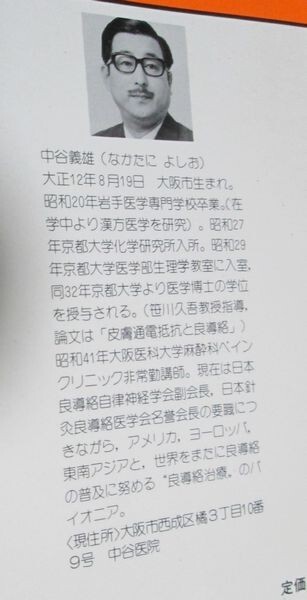 中谷義雄（なかたに よしお）
大正12年8月19日　大阪市生まれ。
昭和20年岩手医学専門学校卒業。（在
学中より漢方医学を研究）。昭和27
年京都大学化学研究所入所。昭和29
年京都大学医学部生理学教室に入室，
同32年京都大学より医学博士の学位
を授与される。（笹川久吾教授指導，
論文は「皮膚通電抵抗と良導絡」）
昭和41年大阪医科大学麻酔科ペイン
クリニック非常勤講師。現在は日本
良導絡自律神経学会副会長，日本針
灸良導絡医学会名誉会長の要職につ
きながら，アメリカ，ヨーロッパ，
東南アジアと，世界をまたに良導絡
の普及に努める〝良導絡治療〟のパ
イオニア。
〈現住所〉大阪市西成区橘3丁目10番
9号　中谷医院
定価